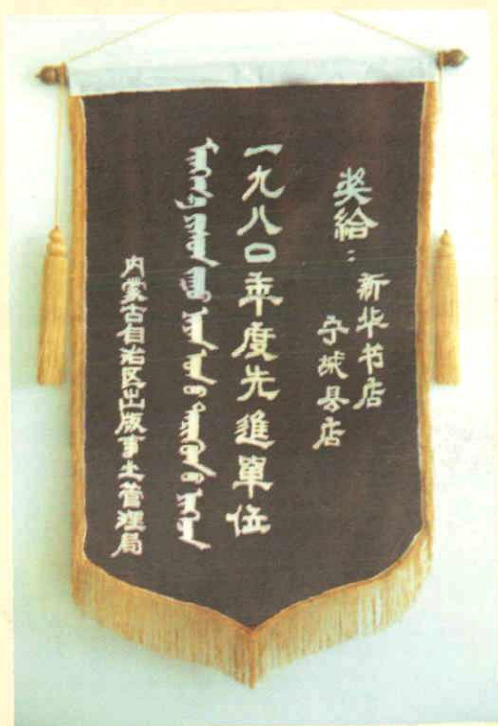 奖给：新华书店
宁城县店
一九八〇年度先進單位
内蒙古自治区出版事业管理局